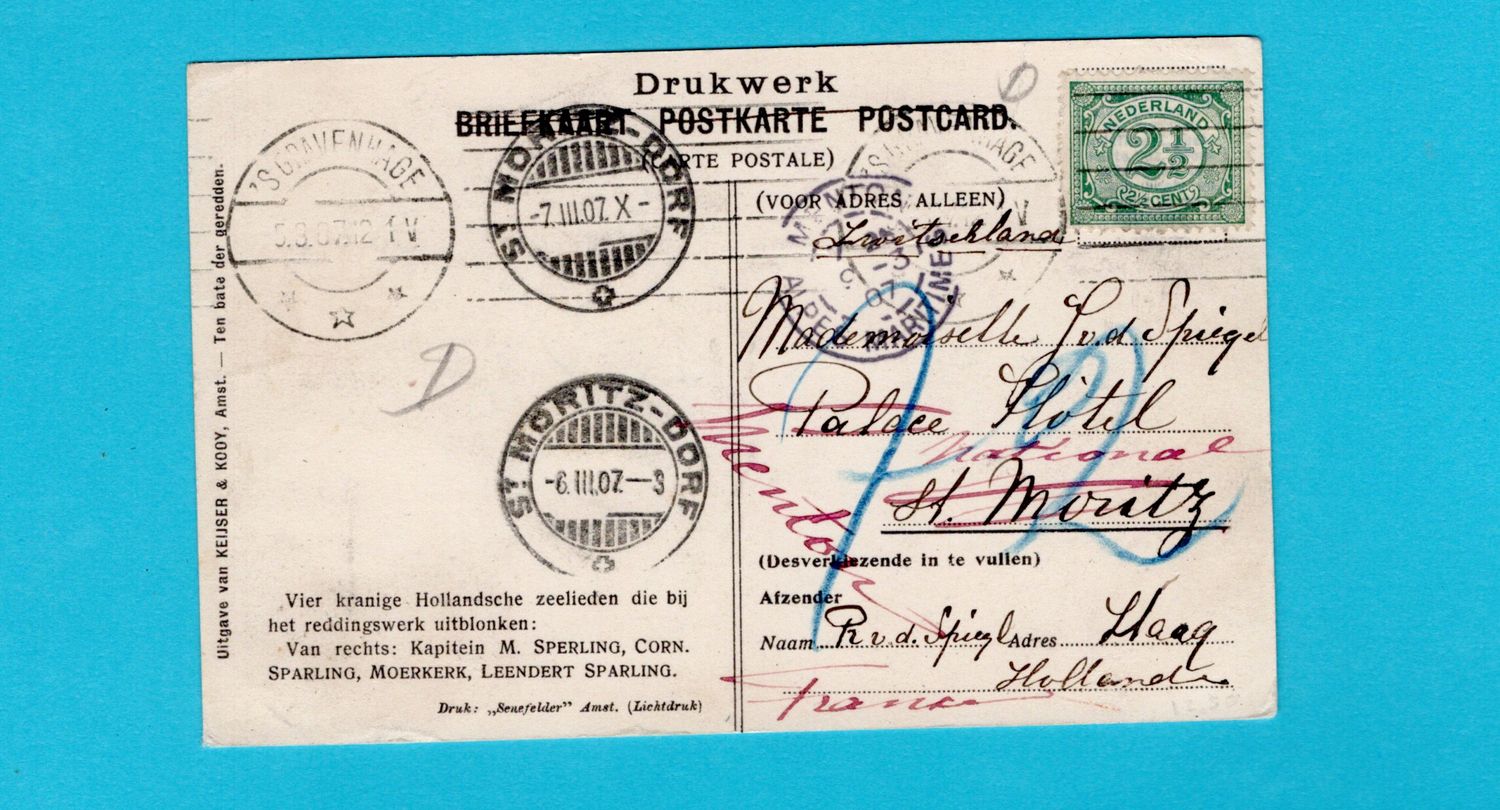 Drukwerk
BRIEFKAART POSTKARTE POSTCARD.
(CARTE POSTALE)
D
NEDERLAND
2½
(2½ CENT)
'S GRAVENHAGE
5.3.07.12-1 V
ST MORITZ-DORF
-7.III.07.X-
'S GRAVENHAGE
V
(VOOR ADRES ALLEEN)
Zwitserland
MENTON
3
07
ALPES MARITIMES
Mademoiselle J v. d. Spiegel
Palace Hôtel
National
St. Moritz
Menton
D
ST MORITZ-DORF
-6.III.07.—3
(Desverkiezende in te vullen)
Afzender
Naam R v. d. Spiegl Adres Haag
Hollande
France
Uitgave van KEIJSER & KOOY, Amst. — Ten bate der geredden.
Vier kranige Hollandsche zeelieden die bij
het reddingswerk uitblonken:
Van rechts: Kapitein M. SPERLING, CORN.
SPARLING, MOERKERK, LEENDERT SPARLING.
Druk: „Senefelder” Amst. (Lichtdruk)